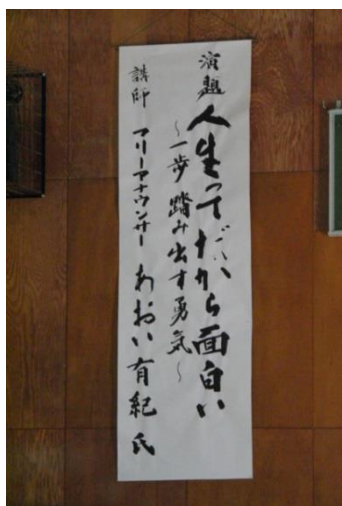 演題 人生ってだから面白い
～一歩踏み出す勇気～
講師 フリーアナウンサー あおい有紀氏